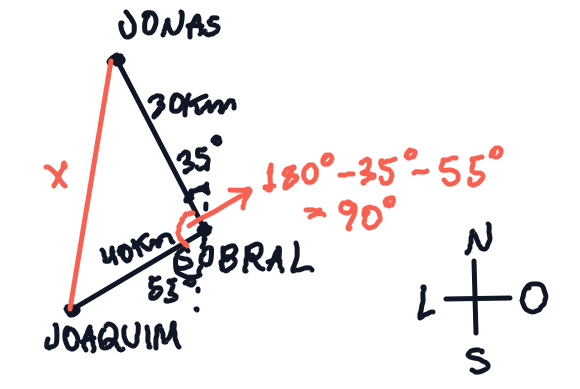 JONAS
30Km
35°
X
180° - 35° - 55°
= 90°
40Km
SOBRAL
55°
JOAQUIM
N
L O
S